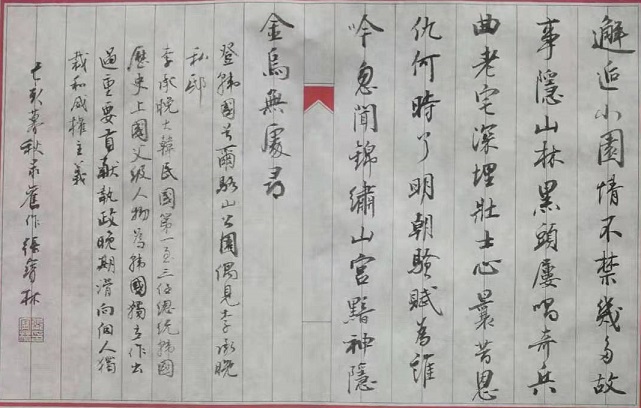 邂逅小園情不禁幾多故
事隱山林黑頭屢唱奇兵
曲老宅深埋壯士心曩昔恩
仇何時了明朝騷賦為誰
吟忽聞錦繡山宮黯神隱
金烏無處尋
登韓國首爾駱山公園偶見李承晚
私邸
李承晚大韓民國第一至三任總統韓國
歷史上國父級人物為韓國獨立作出
過重要貢獻執政晚期滑向個人獨
裁和威權主義
己亥暮秋录舊作張林